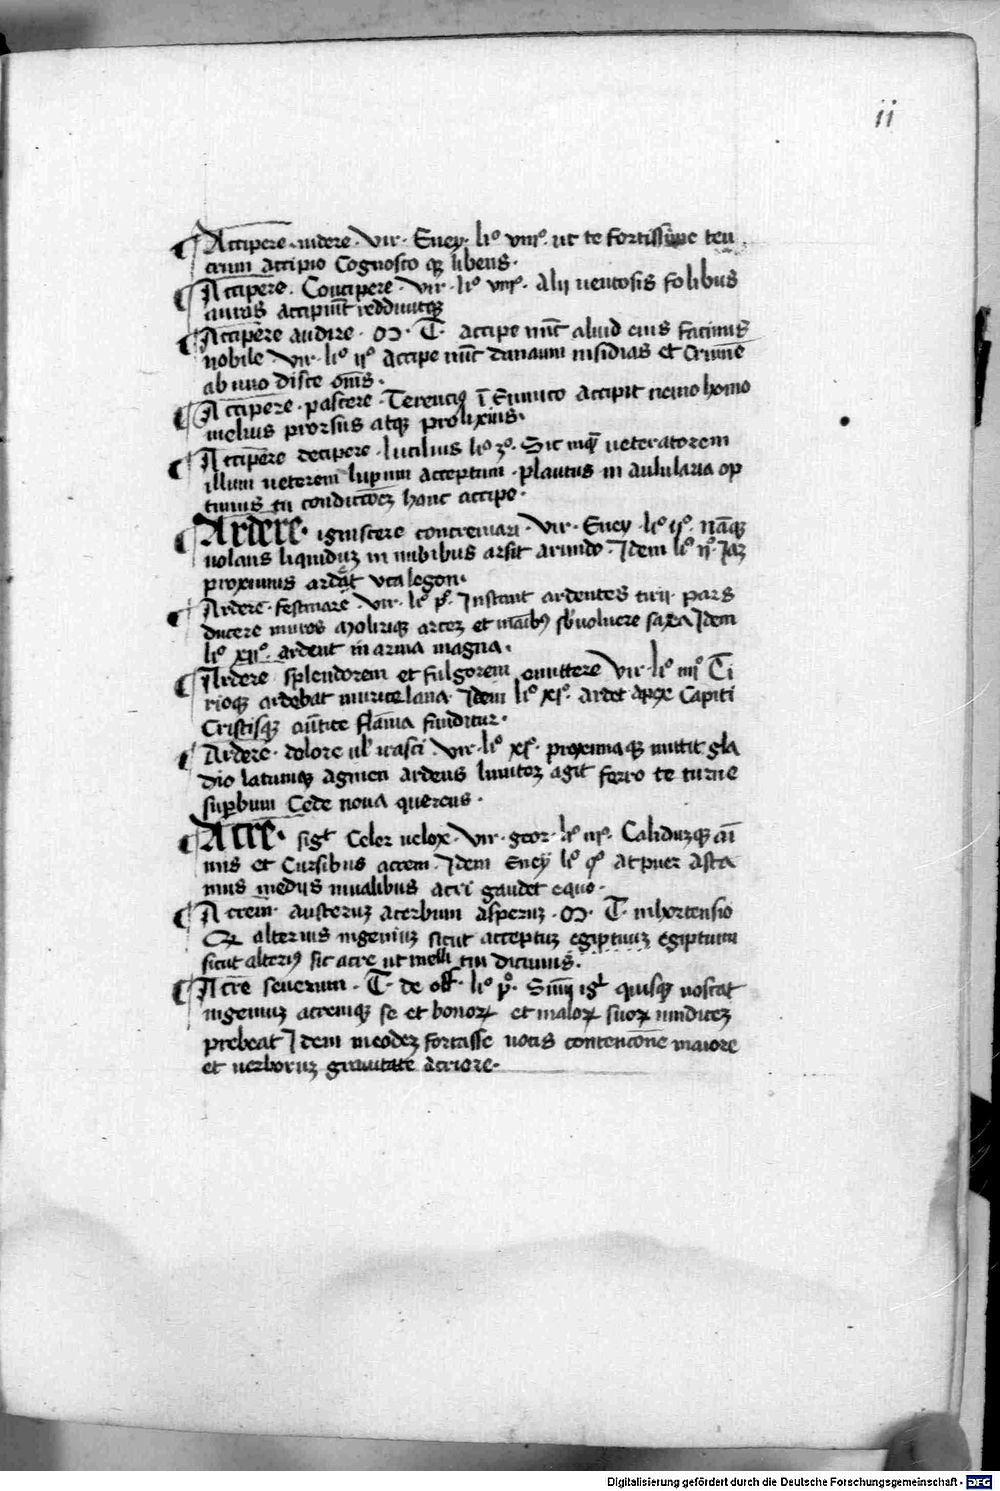 ii
Accipere · uidere · Vir · Eney · li° viii° · ut te fortissime teu
crum accipio Cognosco q libens ·
Accipere · Concipere · Vir · li° viii° · Alij uentosis folibus
auras accipiūt redduntq
Accipere audire · M · T · accipe nūc aliud eius facinus
nobile · Vir · li° ij° accipe nūc danaum insidias et crimīe
ab uno disce om̄s ·
Accipere · pascere · Terencius ī Eunuco accipit nemo homo
melius prorsus atq prolixius ·
Accipere decipere · lucilius li° 3° · Sic inq̄ ueteratorem
illum ueterem lupum acceptum · plautus in aulularia op
tumus tu condicōeʒ hanc accipe ·
Ardere · igniscere concremari · Vir · Eney · li° · nāq
uolans liquiduʒ in nubibus arsit arundo · Idem li° ij° · Iaʒ
proximus ardet ucalegon ·
Ardere · festinare · Vir · li° p° · Instant ardentes tirij pars
ducere muros Molirique arceʒ et manibꝰ sbuoluere saxa Idem
li° xij° · ardent in arma magna ·
Ardere splendorem et fulgorem emittere Vir · li° iiij° Ti
rioq ardebat murice lana · Idem li° xi° · ardet apex Capiti
Cristisq auertice flāma funditur ·
Ardere · dolore ul irasci · Vir · li° x° · proximaq mittit gla
dio latumq agmen ardens limiteʒ agit ferro te turne
supbum Cede noua querens ·
Acre · sigt Celer uelox · Vir · geor · li° iij° · Caliduʒq ai
mis et Cursibus accem · Idem Eney li° q° at puer asta
nius medijs inualibus acri gaudet equo ·
Acrem · austeruʒ acerbum asperuʒ · M · T · inhortensio
Q alterius ingeniuʒ sicut acceptuʒ egiptiuʒ egiptium
sicut alteriꝰ sic acre ut melli tm dicimus ·
Acre seuerum · T · de off · li° p° · Suuʒ igt quisq noscat
ingeniuʒ acremq se et bonoꝝ et maloꝝ suoꝝ iudiceʒ
prebeat Idem ineodeʒ fortasse uocis contencōne maiore
et uerboruʒ grauitate acriore ·
Digitalisierung gefördert durch die Deutsche Forschungsgemeinschaft - DFG